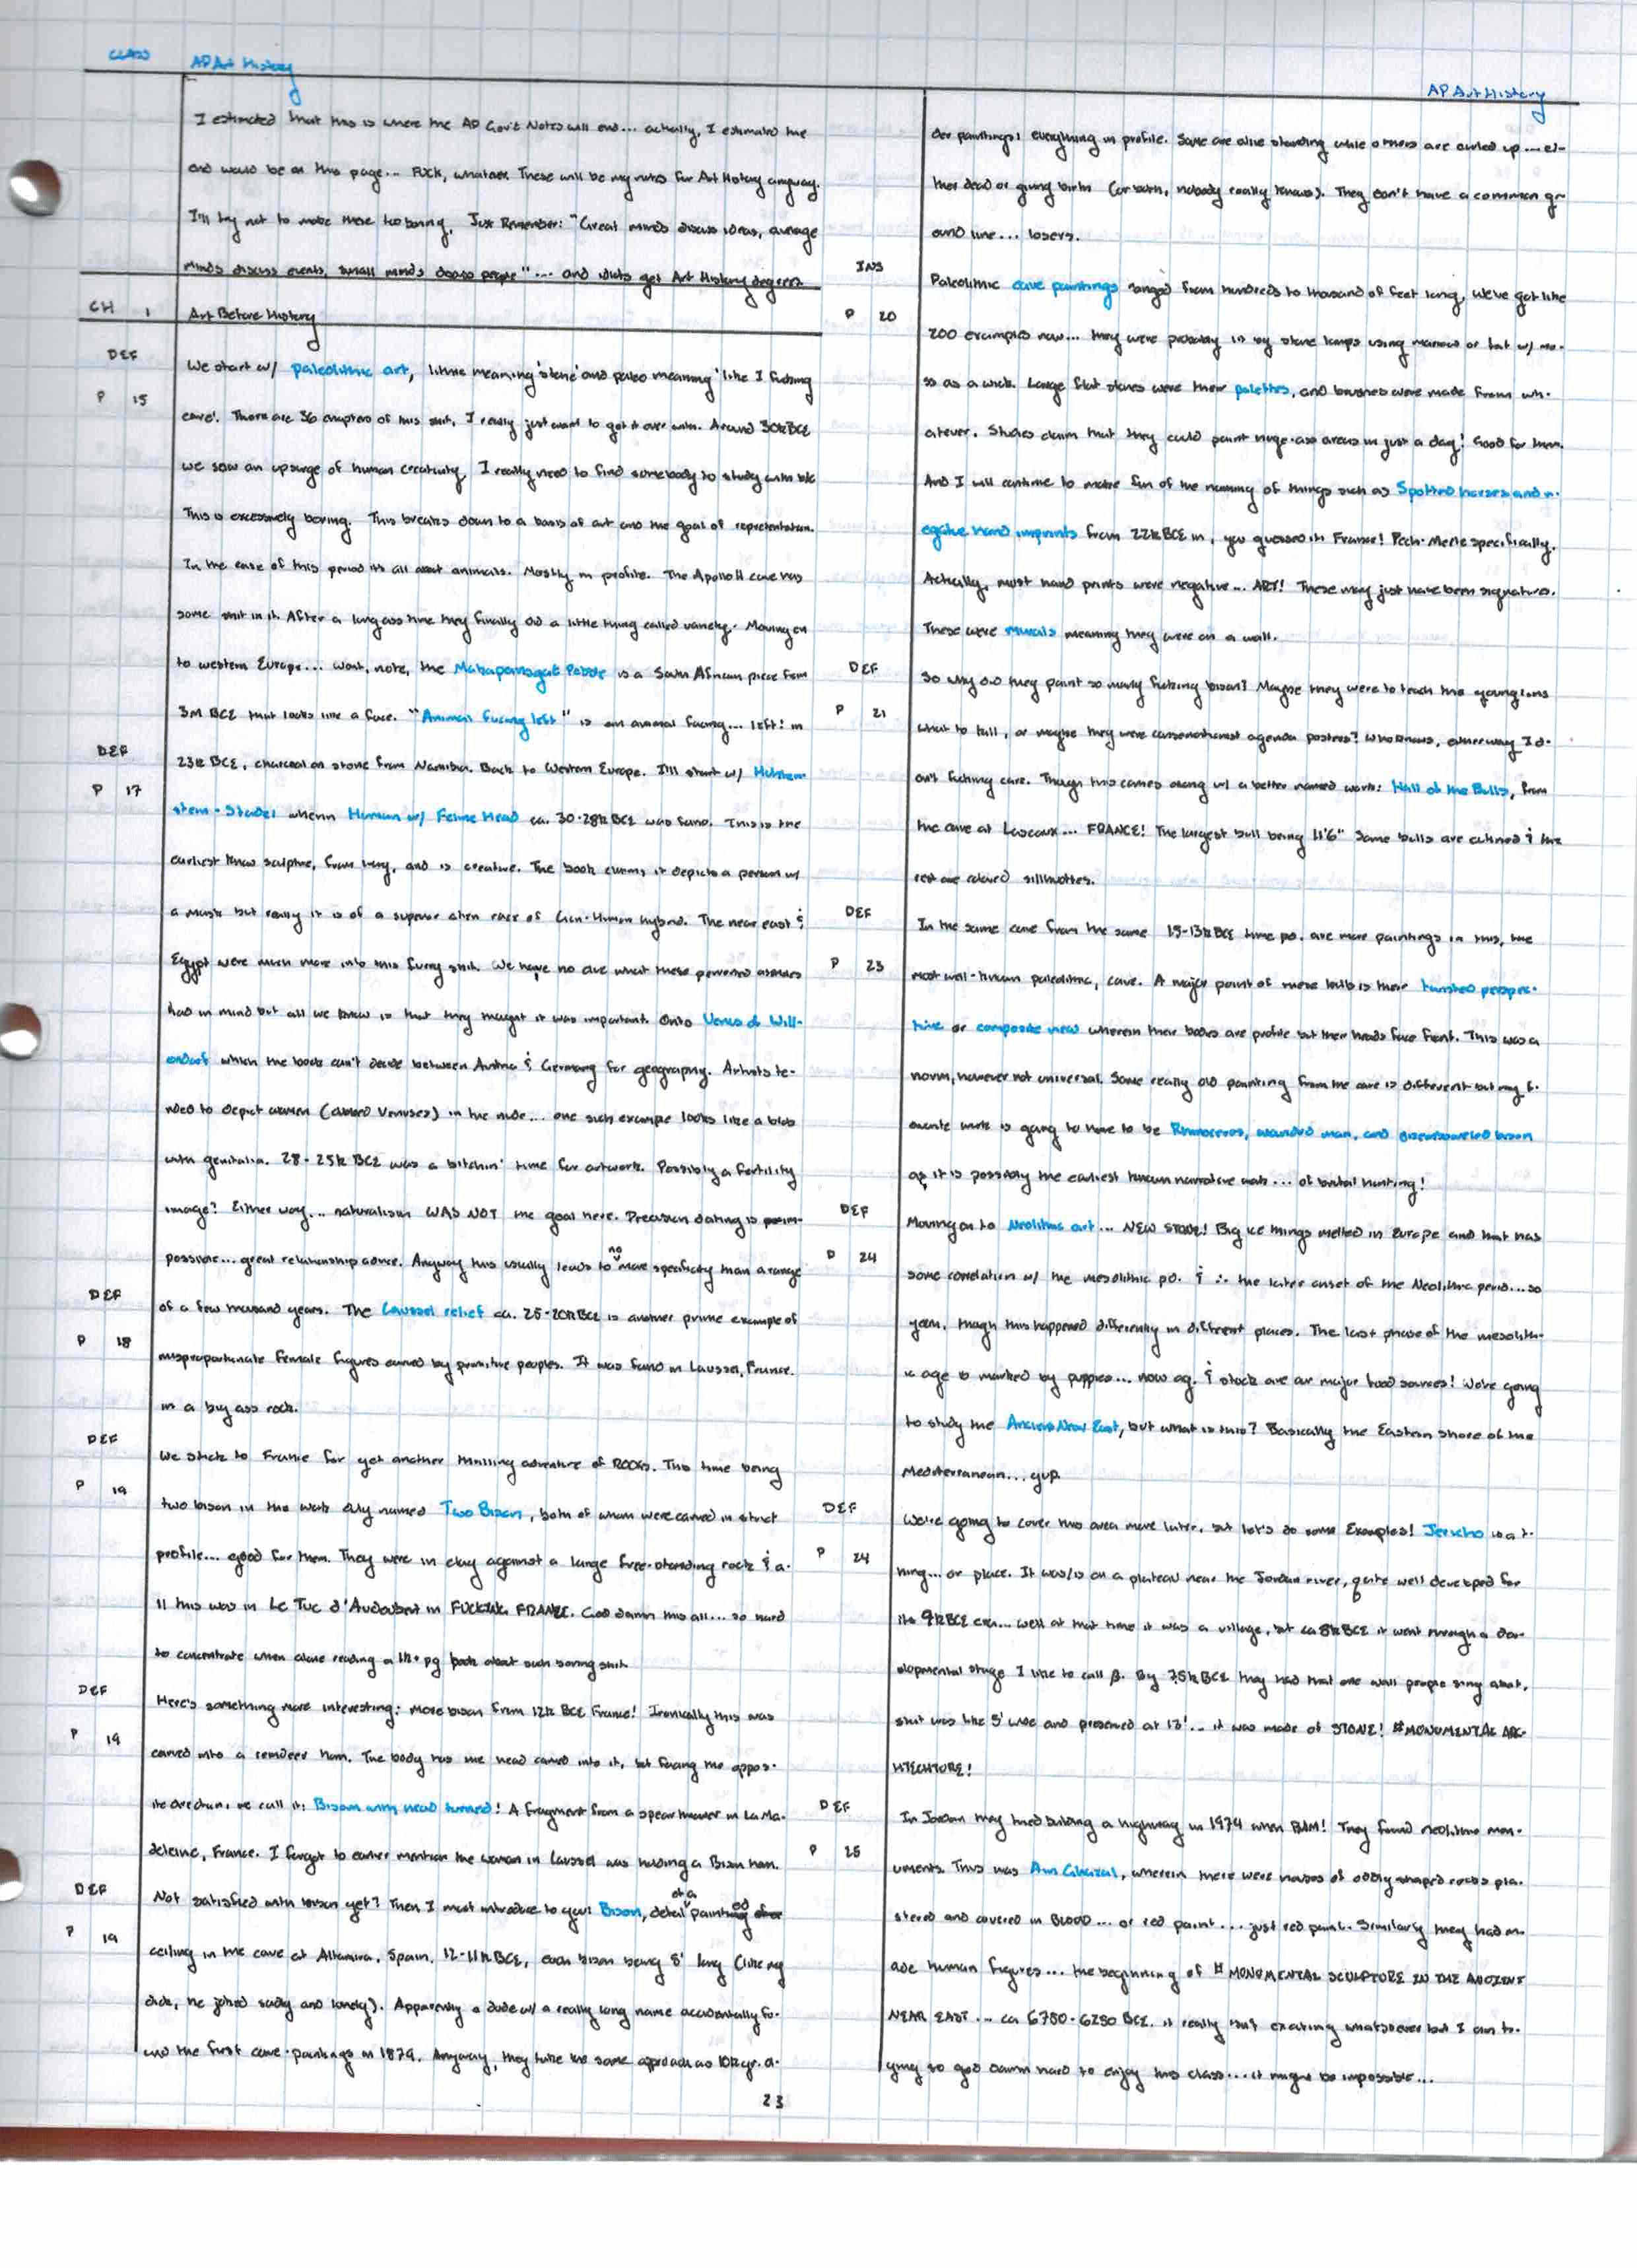 CLASS AP Art History
I estimated that this is where the AP Gov't Notes will end... actually, I estimated the
end would be on this page... Fuck, whatever. These will be my notes for Art History anyway.
I'll try not to make these too boring. Just Remember: "Great minds discuss ideas, average
minds discuss events, small minds discuss people"... and idiots get Art History degrees.
CH 1 Art Before History
DEF
We start w/ paleolithic art, lithic meaning 'stone' and paleo meaning 'like I fucking
P 15
care'. There are 36 chapters of this shit, I really just want to get it over with. Around 30k BCE
we saw an upsurge of human creativity, I really need to find somebody to study with b/c
This is excessively boring. This breaks down to a basis of art and the goal of representation.
In the case of this period it's all about animals. Mostly in profile. The Apollo 11 cave has
some shit in it. After a long ass time they finally did a little thing called variety. Moving on
to western Europe... wait, note, the Makapansgat Pebble is a South African piece from
3M BCE that looks like a face. "Animal facing left" is an animal facing... left! in
DEF
23k BCE, charcoal on stone from Namibia. Back to Western Europe. I'll start w/ Hohlen-
P 17
stein-Stadel wherin Human w/ Feline Head ca. 30-28k BCE was found. This is the
earliest know sculptre, from ivory, and is creative. The book claims it depicts a person w/
a mask but really it is of a superior alien race of Lion-Human hybrid. The near east &
Egypt were much more into this furry shit. We have no clue what these perverted
had in mind but all we know is that they thought it was important. Onto Venus of Will-
endorf which the book can't decide between Austria & Germany for geography. Artists te-
nded to depict women (dubbed Venuses) in the nude... one such example looks like a blob
with genitalia. 28-25k BCE was a bitchin' time for artwork. Possibly a fertility
image? Either way... naturalism WAS NOT the goal here. Precision dating is im-
possible... great relationship advice. Anyway this usually leads to no more specificity than a range
DEF
of a few thousand years. The Laussel relief ca. 25-20k BCE is another prime example of
P 18
misproportionate female figures carved by primitive peoples. It was found in Laussel, France.
in a big ass rock.
DEF
We stick to France for yet another thrilling adventure of ROCKS. This time being
P 19
two bison in the work aply named Two Bison, both of whom were carved in strict
profile... good for them. They were in clay against a large free-standing rock & a-
ll this was in Le Tuc d'Audoubert in FUCKING FRANCE. God damn this all... so hard
to concentrate when alone reading a 1k+ pg book about such boring shit.
DEF
Here's something more interesting: More bison from 12k BCE France! Ironically this was
P 19
carved into a reindeer horn. The body has the head carved into it, but facing the oppos-
ite direction, we call it: Bison with head turned! A fragment from a spear thrower in La Ma-
deleine, France. I forgot to earlier mention the woman in Laussel was holding a Bison horn.
DEF
Not satisfied with bison yet? Then I must introduce to you: Bison, detail of a painted
P 19
ceiling in the cave at Altamira, Spain. 12-11k BCE, each bison being 8' long (like my
dick, he joked sadly and lonely). Apparently a dude w/ a really long name accidentally fo-
und the first cave-paintings in 1879. Anyway, they take the same approach as 10k yr. ol-
23
AP Art History
der paintings: everything in profile. Some are alive standing while others are curled up... ei-
ther dead or giving birth (or born, nobody really knows). They don't have a common gr-
ound line... losers.
INS
Paleolithic cave paintings ranged from hundreds to thousand of feet long, we've got like
P 20
200 examples now... they were probably lit by stone lamps using marrow or fat w/ mo-
ss as a wick. Large flat stones were their palettes, and brushes were made from wh-
atever. Studies claim that they could paint huge-ass areas in just a day! Good for them.
And I will continue to make fun of the naming of things such as Spotted horses and n-
egative hand imprints from 22k BCE in, you guessed it: France! Pech-Merle specifically.
Actually, most hand prints were negative... ART! These may just have been signatures.
These were murals meaning they were on a wall.
DEF
So why did they paint so many fucking bison? Maybe they were to teach the young'ions
P 21
what to kill, or maybe they were conservationist agenda posters? Who knows, either way I d-
on't fucking care. Though this comes along w/ a better named work: Hall of the Bulls, from
the cave at Lascaux... FRANCE! The largest bull being 11'6" Some bulls are outlined & the
rest are colored sillhouttes.
DEF
In the same cave from the same 15-13k BCE time pd. are more paintings in this, the
P 23
most well-known paleolithic, cave. A major point of these bulls is their twisted perspec-
tive or composite view wherein their bodies are profile but their heads face front. This was a
norm, however not universal. Some really old painting from the cave is different but my f-
avorite work is going to have to be Rhinoceros, wounded man, and disemboweled bison
as it is possibly the earliest known narrative work... of brutal hunting!
DEF
Moving on to Neolithic art... NEW STONE! Big ice things melted in Europe and that has
P 24
some correlation w/ the mesolithic pd. & ∴ the later onset of the Neolithic period... so
yeah, though this happened differently in different places. The last phase of the mesolith-
ic age is marked by puppies... now ag. & stock are our major food sources! We're going
to study the Ancient Near East, but what is this? Basically the Eastern shore of the
Mediterranean... yup.
DEF
We're going to cover this area more later, but let's do some Examples! Jericho is a t-
P 24
hing... or place. It was/is on a plateau near the Jordan river, quite well developed for
its 9k BCE era... well at that time it was a village, but ca 8k BCE it went through a dev-
elopmental stage I like to call β. By 7.5k BCE they had that one wall people sing about,
shit was like 5' wide and preserved at 13'... it was made of STONE! #MONUMENTAL ARC-
HITECHTURE!
DEF
In Jordan they tried building a highway in 1974 when BAM! They found neolithic mon-
P 25
uments. This was Ain Ghazal, wherein there were houses of oddly shaped rocks pla-
stered and covered in BLOOD... or red paint... just red paint. Similarly they had m-
ade human figures... the beginning of #MONUMENTAL SCULPTURE IN THE ANCIENT
NEAR EAST... ca 6750-6250 BCE. it really isn't exciting whatsoever but I am tr-
ying so god damn hard to enjoy this class... it might be impossible...